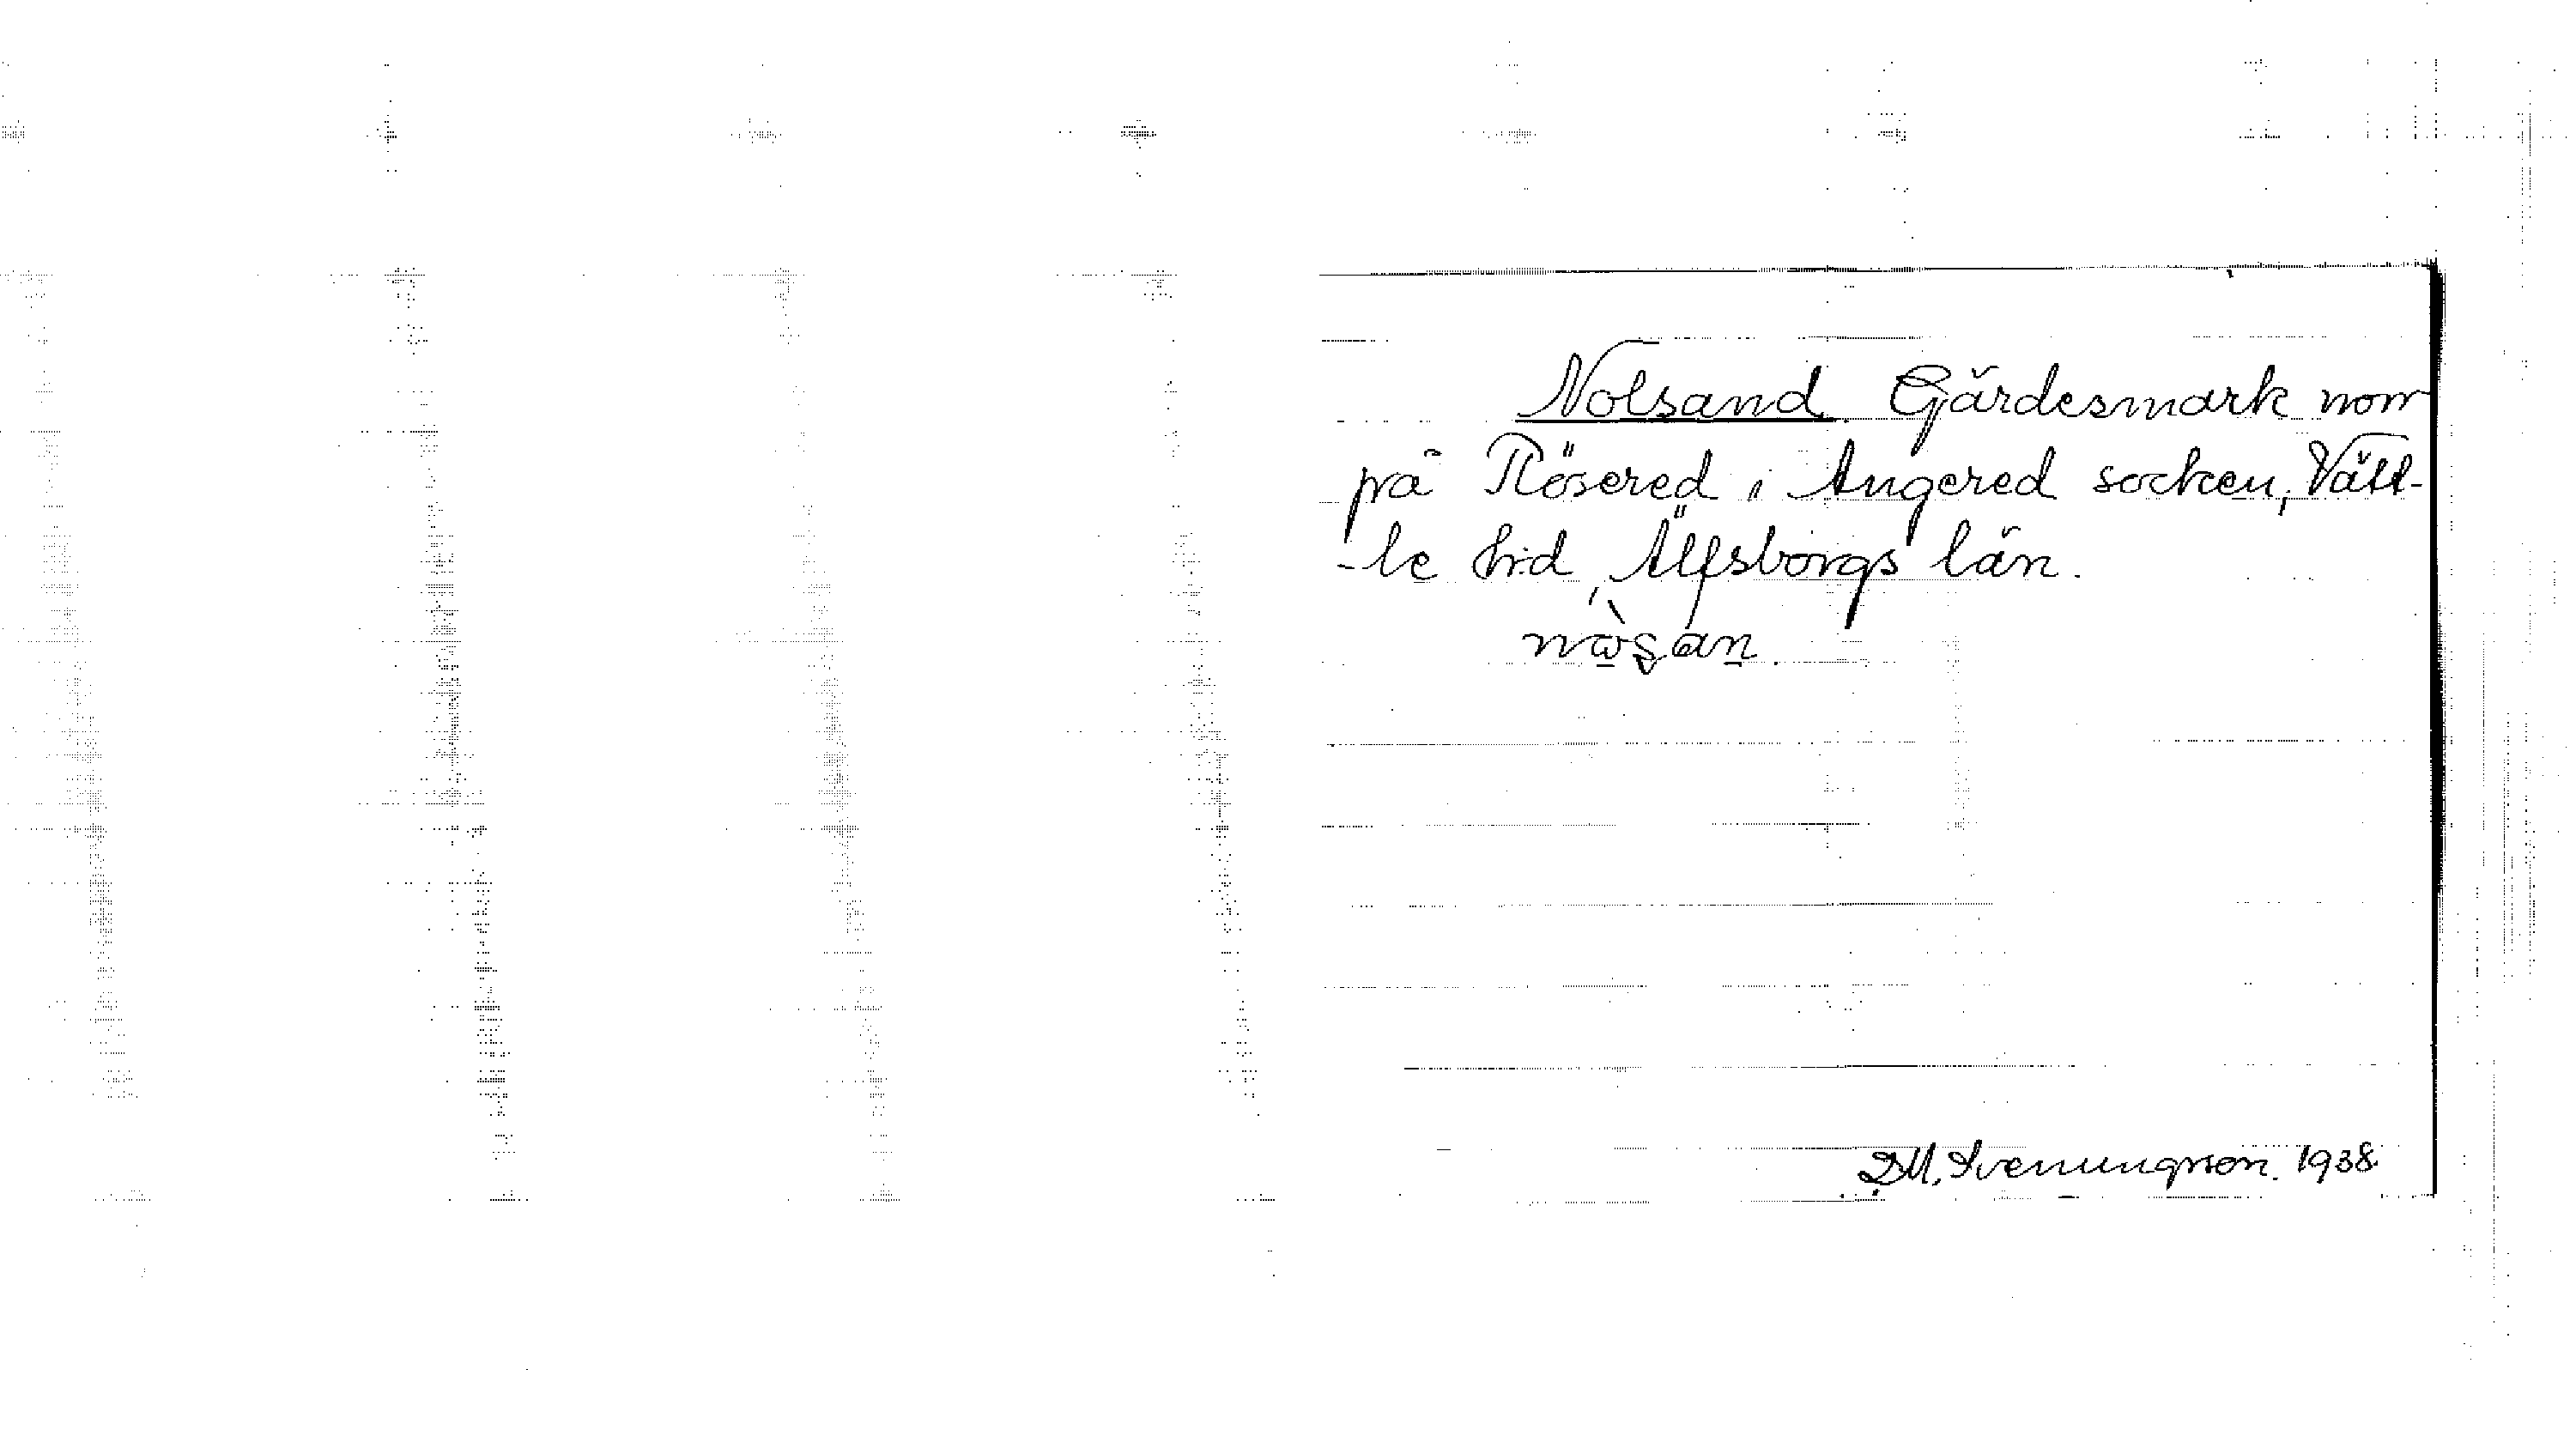 Nolsand Gärdesmark norr
på Rösered i Angered socken, Vätt-
-le hd, Älfsborgs län.
D.M. Svenungsson. 1938